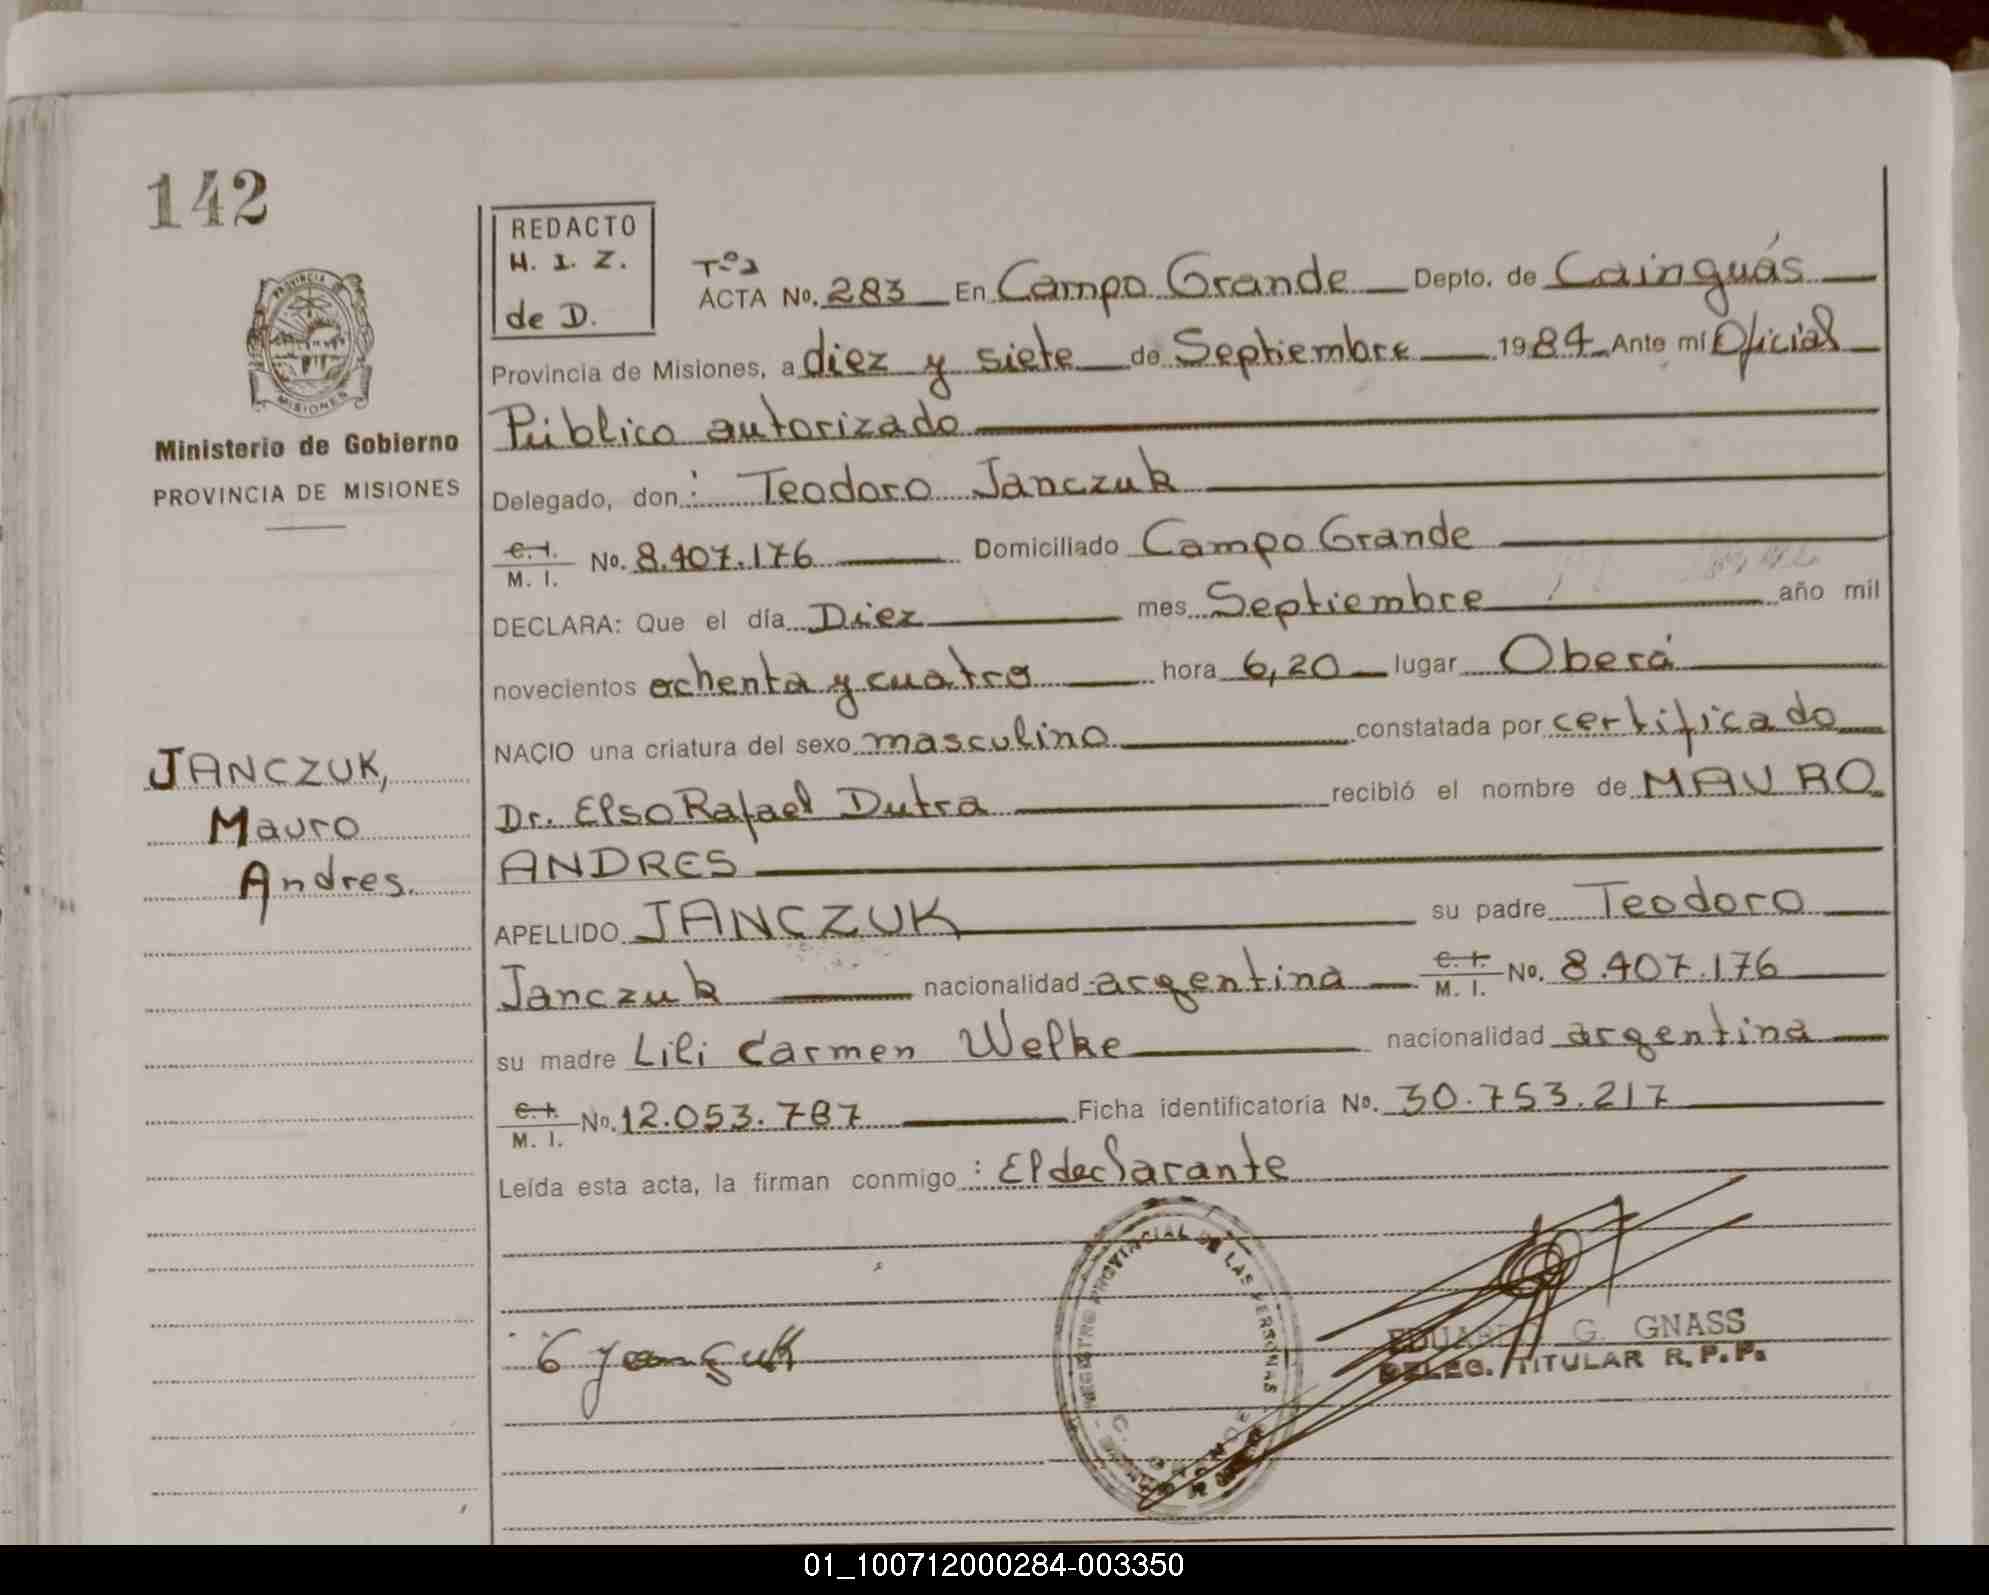 142
PROVINCIA DE
MISIONES
Ministerio de Gobierno
PROVINCIA DE MISIONES
JANCZUK,
Mauro
Andres.
REDACTO
H. I. Z.
de D.
Tº2
ACTA No. 283 En Campo Grande Depto. de Cainguás
Provincia de Misiones, a diez y siete de Septiembre 1984 Ante mí Oficial
Público autorizado
Delegado, don: Teodoro Janczuk
C. I. M. I. No. 8.407.176 Domiciliado Campo Grande
DECLARA: Que el día Diez mes Septiembre año mil
novecientos ochenta y cuatro hora 6,20 lugar Oberá
NACIO una criatura del sexo masculino constatada por certificado
Dr. Elso Rafael Dutra recibió el nombre de MAURO
ANDRES
APELLIDO JANCZUK su padre Teodoro
Janczuk nacionalidad argentina C. I. M. I. No. 8.407.176
su madre Lili Carmen Welke nacionalidad argentina
C. I. M. I. No. 12.053.787 Ficha identificatoria No. 30.753.217
Leída esta acta, la firman conmigo: El declarante
REGISTRO PROVINCIAL DE LAS PERSONAS
EDUARDO G. GNASS
DELEG. TITULAR R. P. P.
01_100712000284-003350